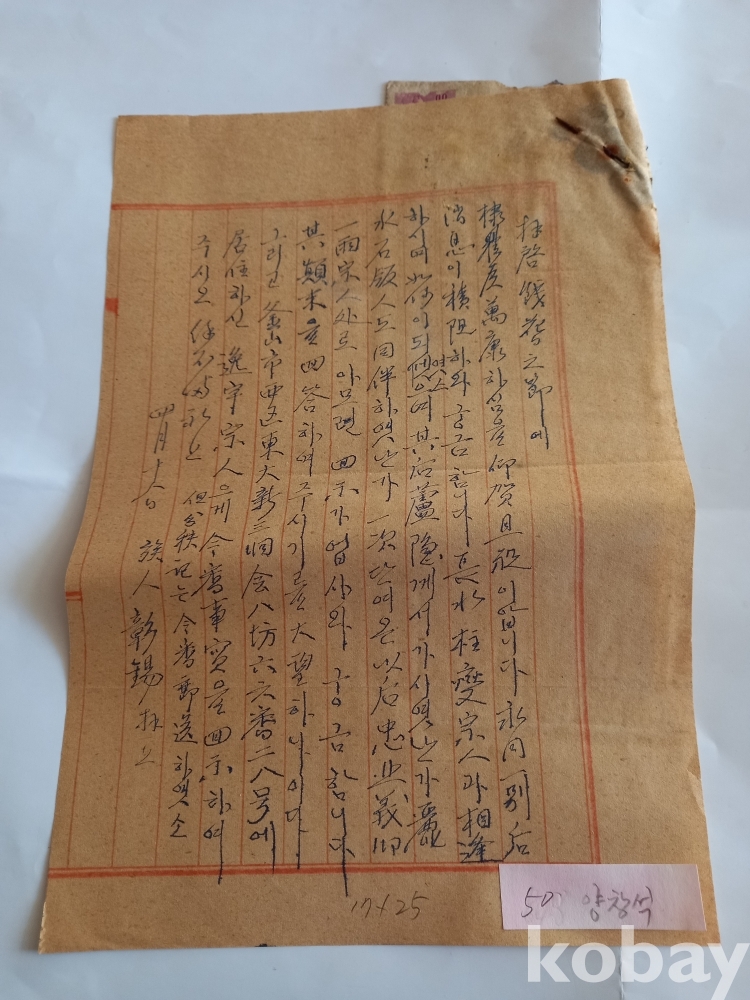 拜啓 餞春之節에
棣體度萬康하심을 仰賀且祝이옵니다 永同一別后
消息이 積阻하와 궁금합니다 長水 柱燮宗人과 相逢
하시며 如何이 되엿
여소
며 其后 蘆隱께서 가시엿난가 麗
水 石 人도 同伴하엿난가 一次 단여온 以后 忠 義
一兩宗人外로 아모런 回示가 업사와 궁금합니다
其顚末을 回答하여 주시기를 大望하나이다
그리고 釜山市西區東大新三洞会八坊六六番二八号에
居住하신 逸宇宗人으게 今番事實을 回示하여
주시오 餘不備礼上 但 秩記는 今番郵送하엿소
四月十六日 族人 彰錫 拜上
17×25
50 양창석
kobay